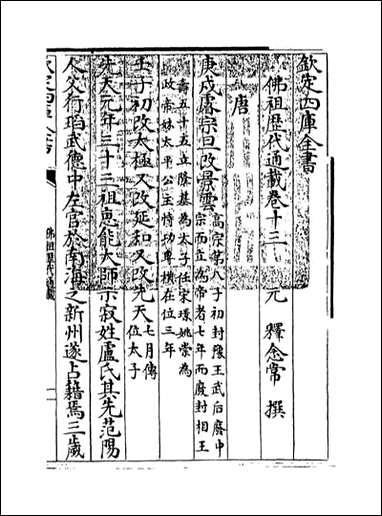 欽定四庫全書
佛祖歷代通載卷十三
元 釋念常 撰
唐
庚戌睿宗旦改景雲
高宗第八子初封豫王武后廢中
宗而立為帝者七年而廢封相王
壽五十五立隆基為太子任宋璟姚崇為
政帝妹太平公主恃功專橫在位三年
壬子初改太極又改延和又改先天
七月傳
位太子
先天元年三十三祖惠能大師示寂姓盧氏其先范陽
人父行瑫武德中左官於南海之新州遂占籍焉三歲
欽定四庫全書
佛祖歷代通載